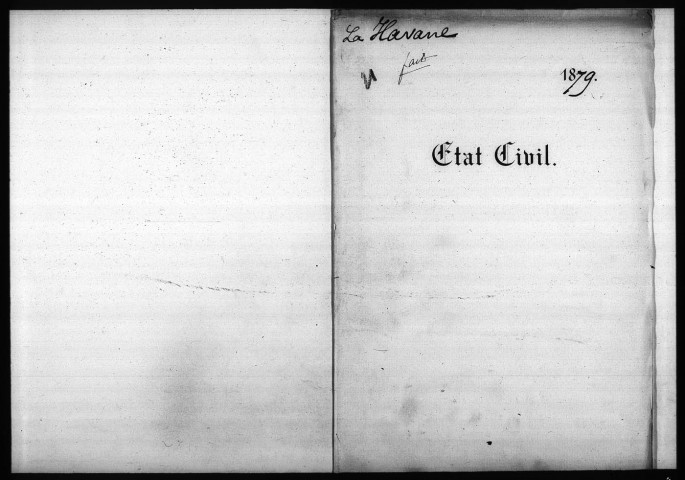 La Havane
fait
1879.
Etat Civil.